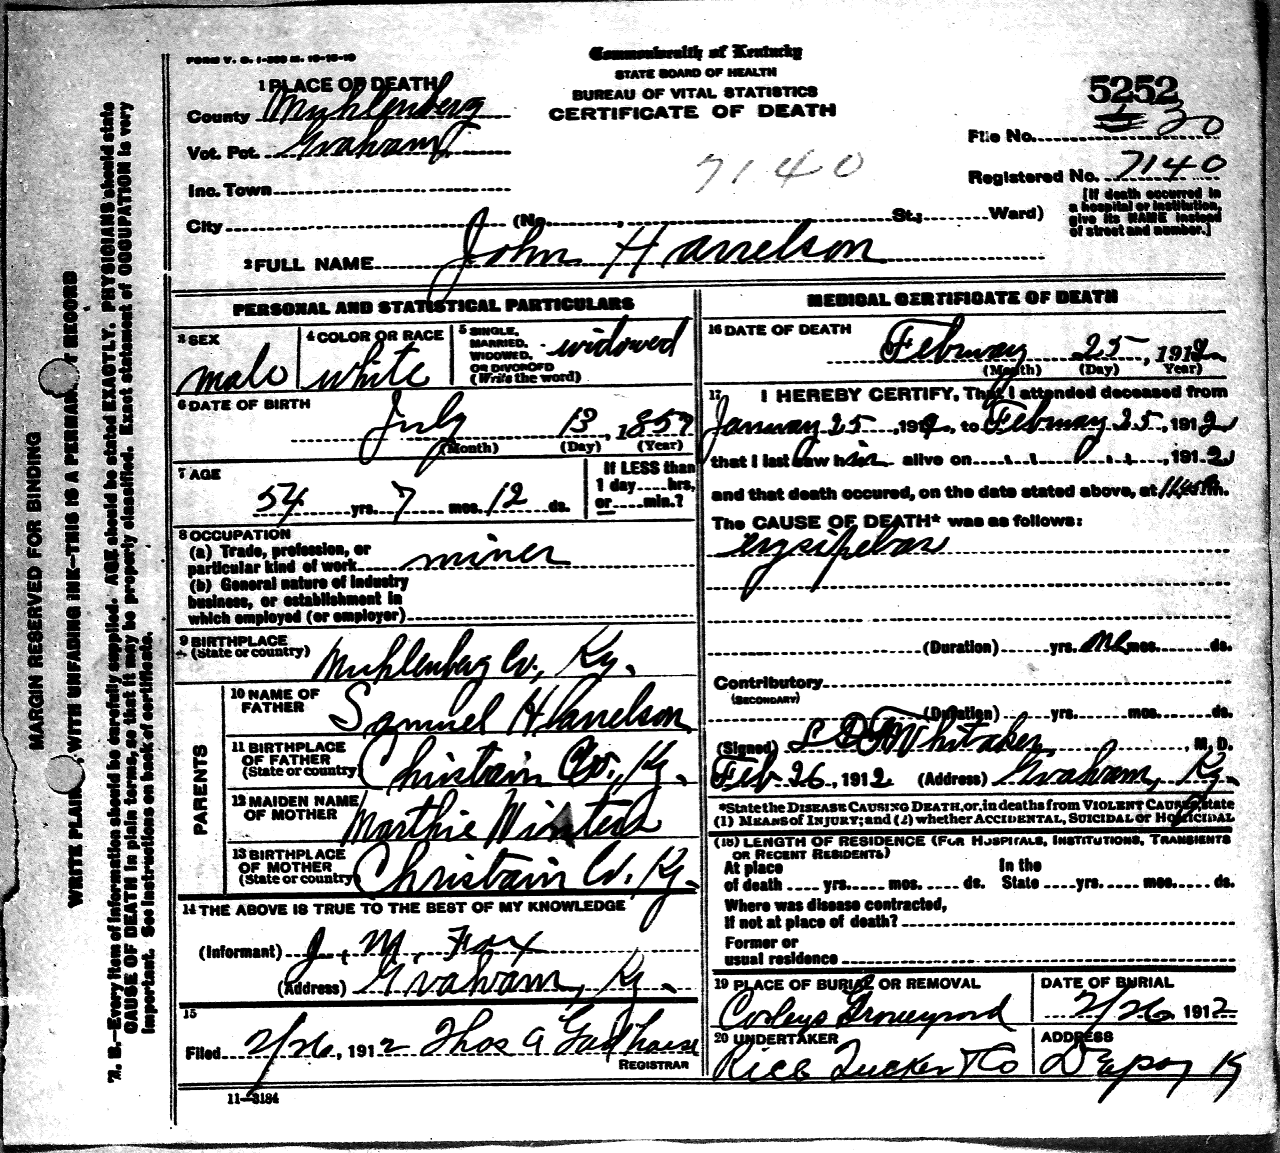 FORM V. S. 1-
Commonwealth of Kentucky
STATE BOARD OF HEALTH
BUREAU OF VITAL STATISTICS
CERTIFICATE OF DEATH
1 PLACE OF DEATH
County Muhlenberg
Vot. Pct. Graham
Inc. Town
City (No. , St.; Ward)
5252
File No. 30
7140
Registered No. 7140
[If death occurred in
a hospital or institution,
give its NAME instead
of street and number.]
2 FULL NAME John Harrelson
PERSONAL AND STATISTICAL PARTICULARS
3 SEX
male
4 COLOR OR RACE
white
5 SINGLE,
MARRIED,
WIDOWED,
OR DIVORCED
(Write the word)
widowed
6 DATE OF BIRTH
July 13, 1857
(Month) (Day) (Year)
7 AGE
54 yrs. 7 mos. 12 ds.
If LESS than
1 day hrs,
or min.?
8 OCCUPATION
(a) Trade, profession, or
particular kind of work miner
(b) General nature of industry
business, or establishment in
which employed (or employer)
9 BIRTHPLACE
(State or country) Muhlenberg Co., Ky.
PARENTS
10 NAME OF
FATHER Samuel Harrelson
11 BIRTHPLACE
OF FATHER
(State or country) Christain Co., Ky.
12 MAIDEN NAME
OF MOTHER Marthie
13 BIRTHPLACE
OF MOTHER
(State or country) Christain Co. Ky.
14 THE ABOVE IS TRUE TO THE BEST OF MY KNOWLEDGE
(Informant) J. M. Fox
(Address) Graham, Ky.
15
Filed 2/26, 1912 Thos A
REGISTRAR
11-3184
MEDICAL CERTIFICATE OF DEATH
16 DATE OF DEATH
February 25, 1912
(Month) (Day) (Year)
17 I HEREBY CERTIFY, That I attended deceased from
January 25, 1912, to February 25, 1912
that I last saw him alive on , 1912
and that death occured, on the date stated above, at m.
The CAUSE OF DEATH* was as follows:
erysipelas
(Duration) yrs. one mos. ds.
Contributory
(SECONDARY)
(Duration) yrs. mos. ds.
(Signed) Whitaker, M. D.
Feb 26, 1912 (Address) Graham, Ky.
*State the DISEASE CAUSING DEATH, or, in deaths from VIOLENT CAUSES, state
(1) MEANS of INJURY; and (2) whether ACCIDENTAL, SUICIDAL or HOMICIDAL
(18) LENGTH OF RESIDENCE (FOR HOSPITALS, INSTITUTIONS, TRANSIENTS
OR RECENT RESIDENTS)
At place In the
of death yrs. mos. ds. State yrs. mos. ds.
Where was disease contracted,
If not at place of death?
Former or
usual residence
19 PLACE OF BURIAL OR REMOVAL
Corleys Graveyard
DATE OF BURIAL
2/26 1912
20 UNDERTAKER
Rice Tucker & Co
ADDRESS
Depoy Ky
MARGIN RESERVED FOR BINDING
WRITE PLAINLY, WITH UNFADING INK—THIS IS A PERMANENT RECORD
N. B.—Every item of information should be carefully supplied. AGE should be stated EXACTLY. PHYSICIANS should state
CAUSE OF DEATH in plain terms, so that it may be properly classified. Exact statement of OCCUPATION is very
important. See instructions on back of certificate.